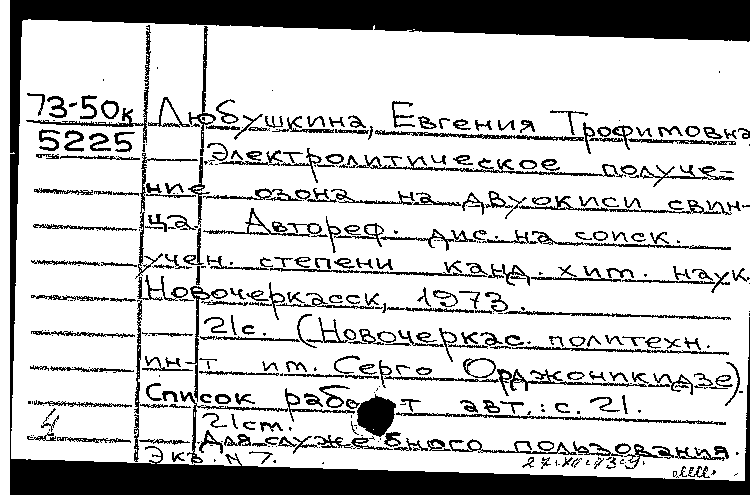 73-50к Любушкина, Евгения Трофимовна
5225 Электролитическое получе-
ние озона на двуокиси свин-
ца Автореф. дис. на соиск.
учен. степени канд. хим. наук.
Новочеркасск, 1973.
21с. (Новочеркас. политехн.
ин-т им. Серго Орджоникидзе).
Список работ авт.: с. 21.
21см.
Для служебного пользования.
Экз. N 7.